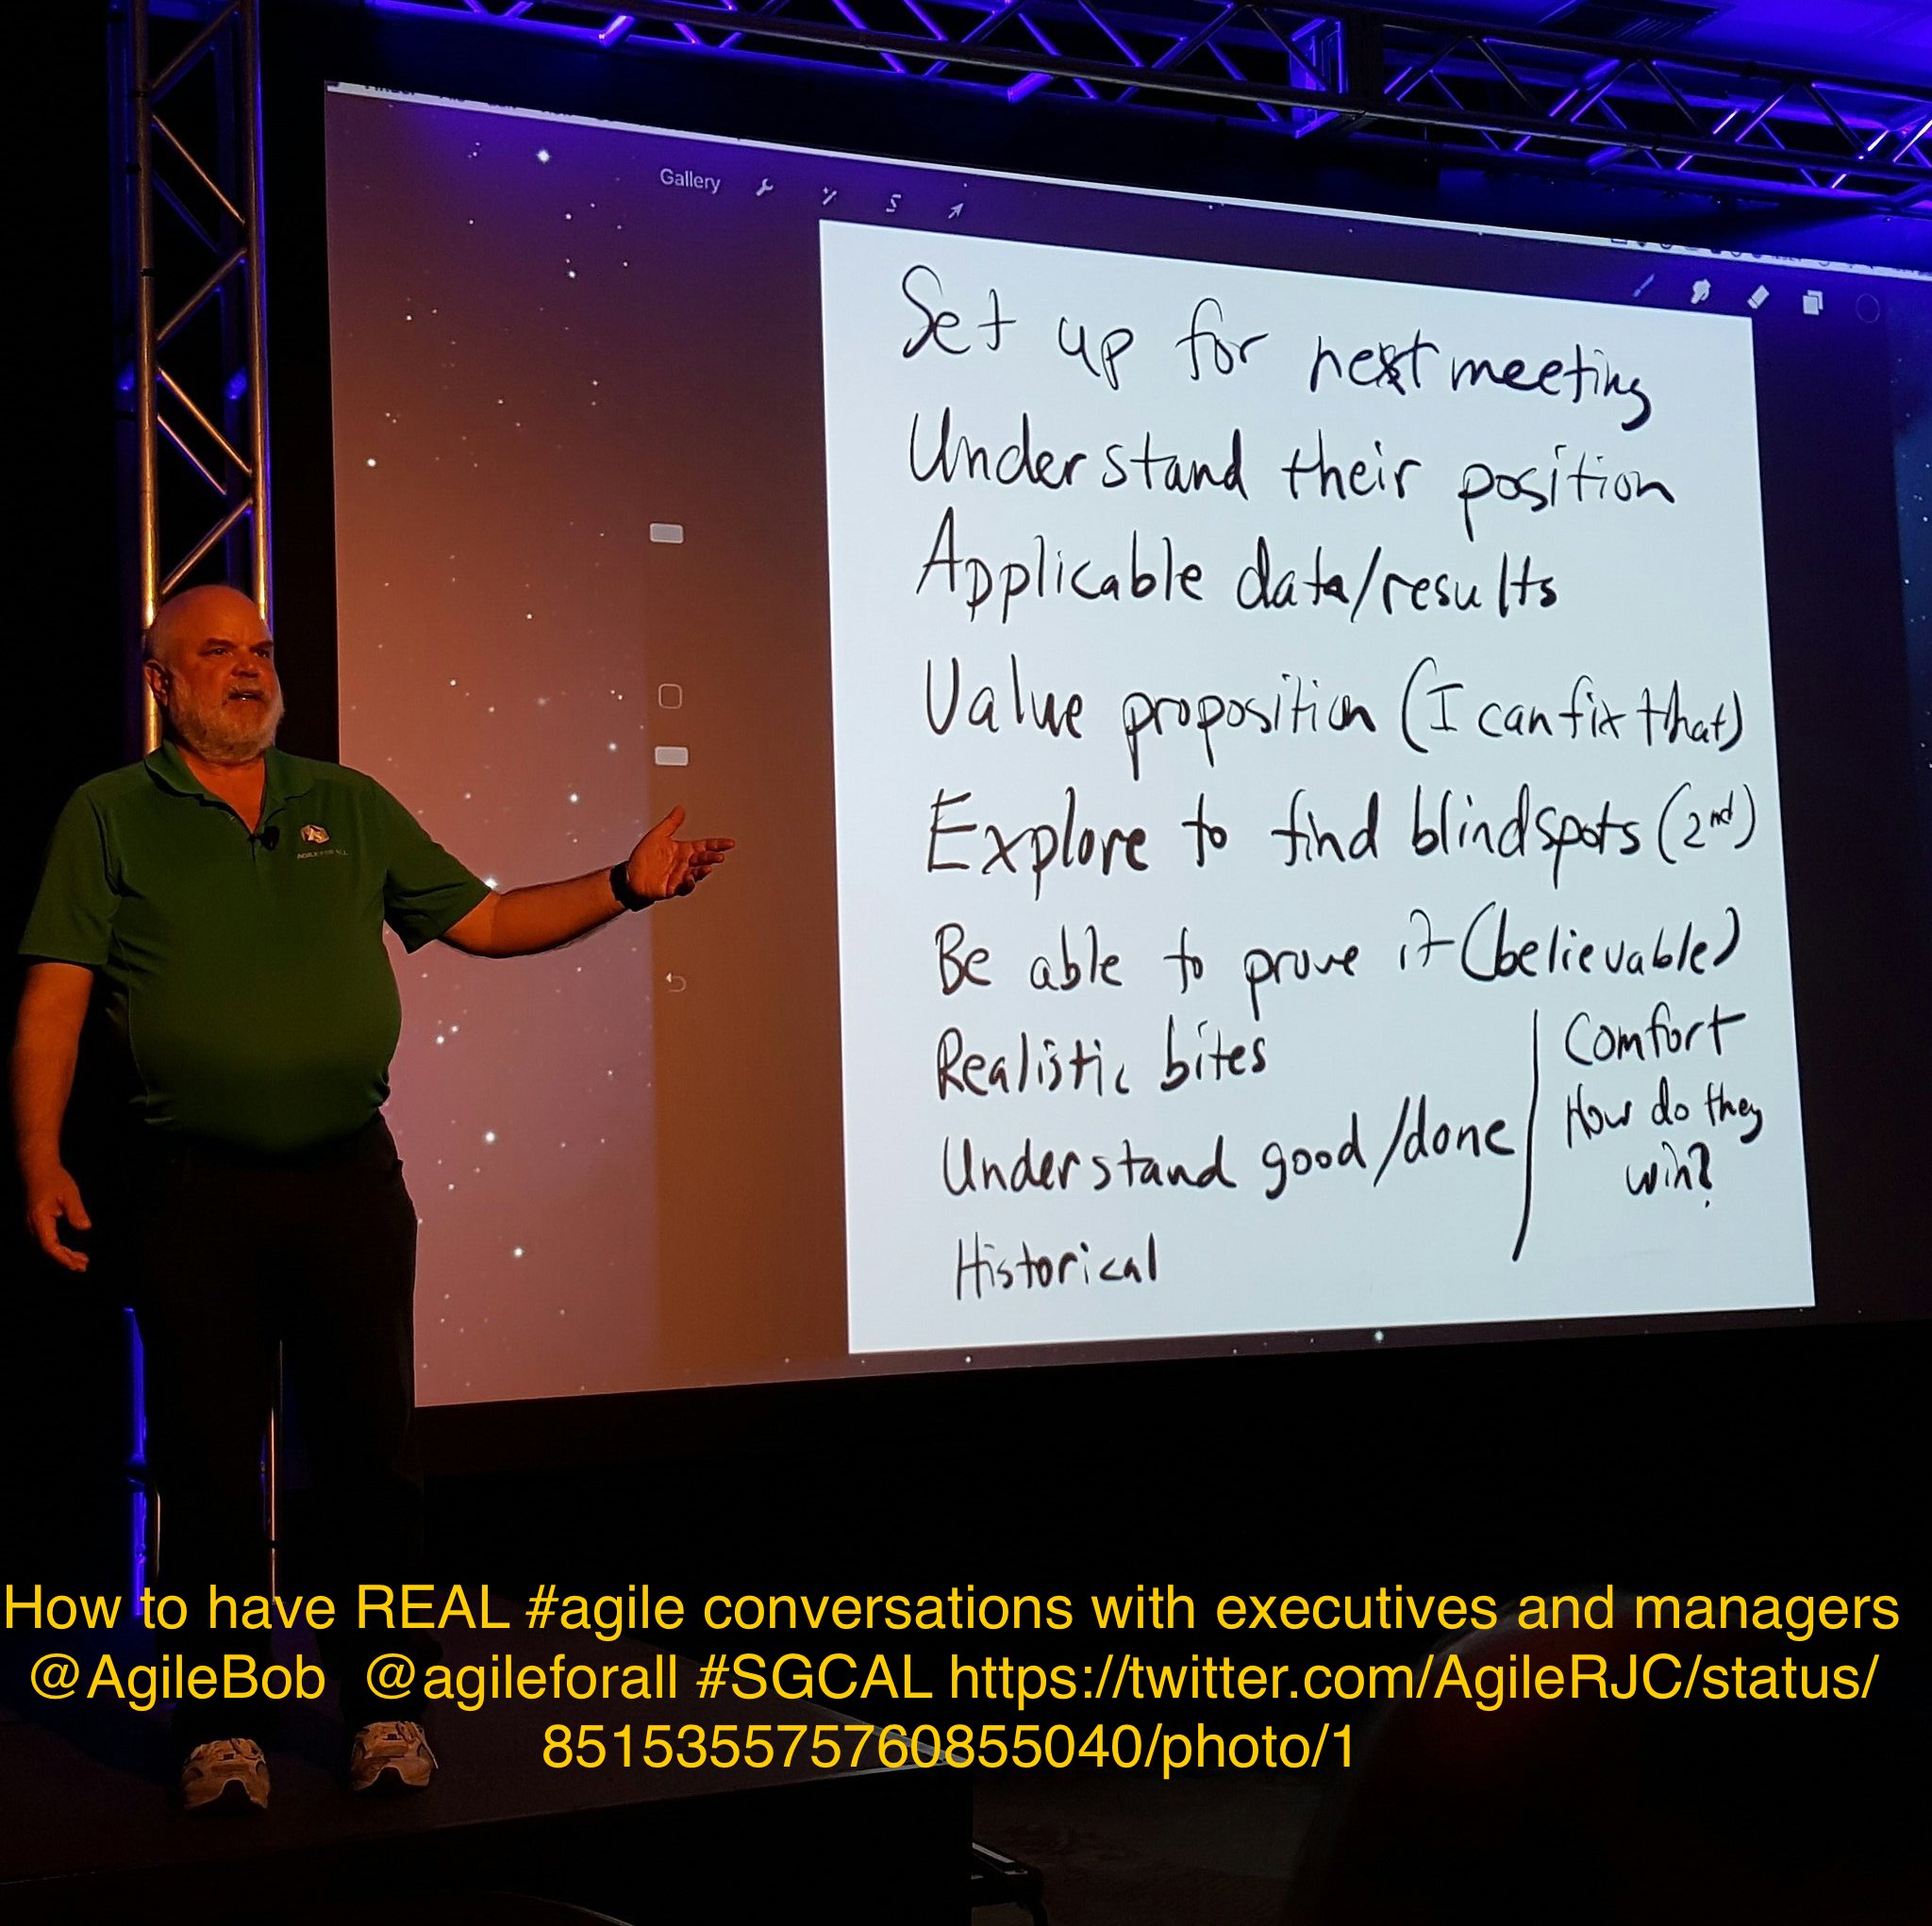 Gallery
Set up for next meeting
Understand their position
Applicable data/results
Value proposition (I can fix that)
Explore to find blindspots (2nd)
Be able to prove it (believable)
Realistic bites
Understand good/done
Historical
Comfort
How do they
win?
AGILE FOR ALL
How to have REAL #agile conversations with executives and managers
@AgileBob @agileforall #SGCAL https://twitter.com/AgileRJC/status/
851535575760855040/photo/1